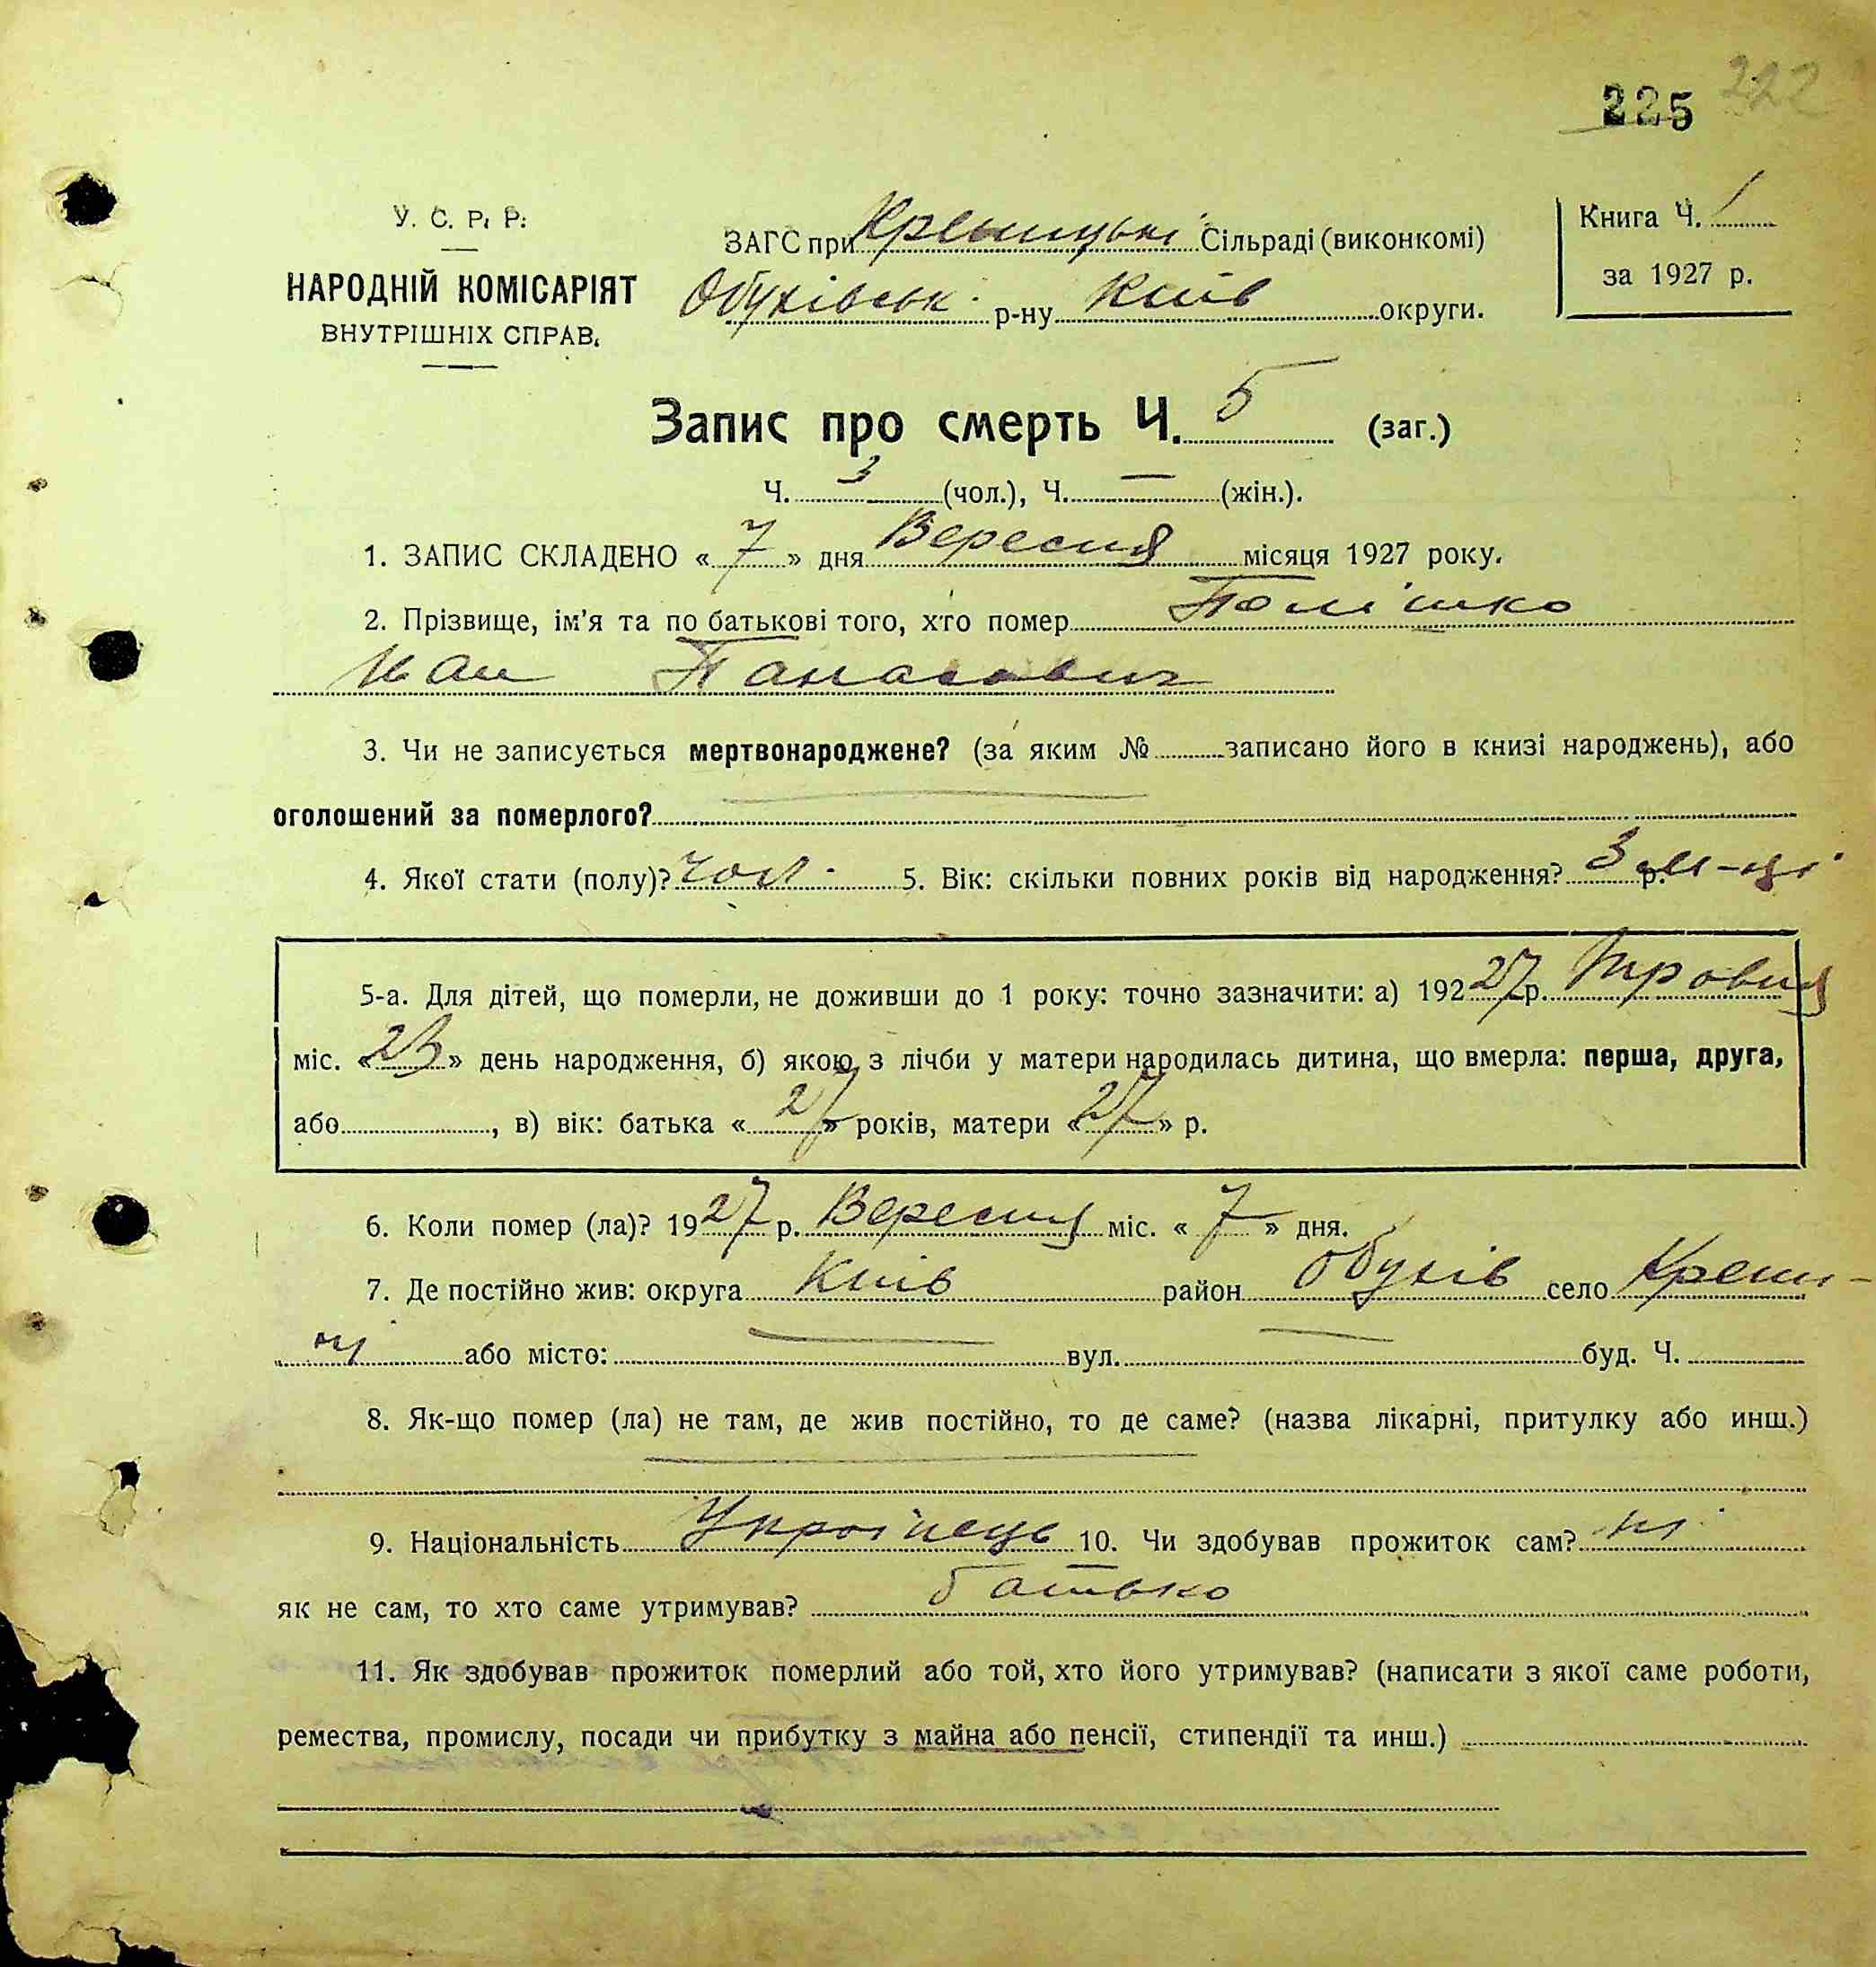 225 222
У. С. Р. Р.
НАРОДНІЙ КОМІСАРІЯТ
ВНУТРІШНІХ СПРАВ.
ЗАГС при Креницькі Сільраді (виконкомі)
Обухівськ. р-ну Київ округи.
Книга Ч. 1
за 1927 р.
Запис про смерть Ч. 5 (заг.)
Ч. 3 (чол.), Ч. — (жін.).
1. ЗАПИС СКЛАДЕНО « 7 » дня Вересня місяця 1927 року.
2. Прізвище, ім'я та по батькові того, хто помер Полішко
Іван Панасович
3. Чи не записується мертвонароджене? (за яким № записано його в книзі народжень), або
оголошений за померлого?
4. Якої стати (полу)? чол. 5. Вік: скільки повних років від народження? 3 р. м-ці
5-а. Для дітей, що померли, не доживши до 1 року: точно зазначити: а) 192 27 р. Травня
міс. « 23 » день народження, б) якою з лічби у матери народилась дитина, що вмерла: перша, друга,
або , в) вік: батька « 27 » років, матери « 27 » р.
6. Коли помер (ла)? 19 27 р. Вересня міс. « 7 » дня.
7. Де постійно жив: округа Київ район Обухів село Крени-
чі або місто: вул. буд. Ч.
8. Як-що помер (ла) не там, де жив постійно, то де саме? (назва лікарні, притулку або инш.)
9. Національність Українець 10. Чи здобував прожиток сам? ні
як не сам, то хто саме утримував? батько
11. Як здобував прожиток померлий або той, хто його утримував? (написати з якої саме роботи,
ремества, промислу, посади чи прибутку з майна або пенсії, стипендії та инш.)